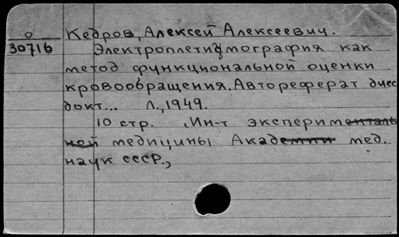 О Кедров, Алексей Алексеевич.
30716 Электроплетизмография как
метод функциональной оценки
кровообращения. Автореферат дисс.
докт... Л., 1949.
10 стр. (Ин-т эксперименталь
ной медицины Академии мед.
наук СССР.,